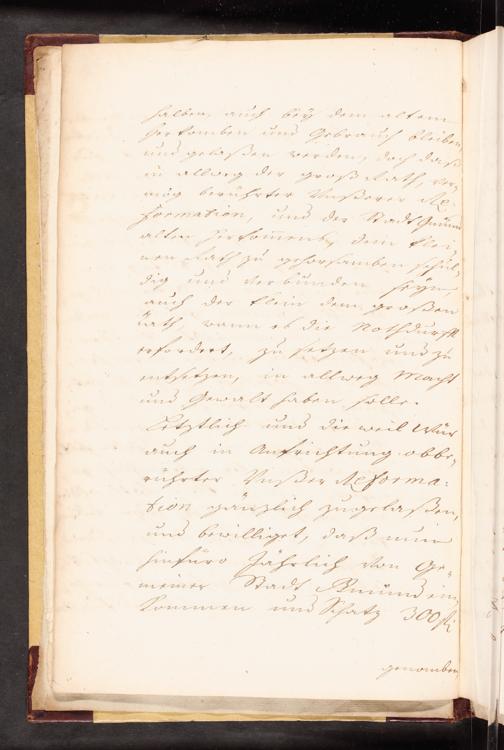 halben, auch bey dem altem
herkomben und Gebrauch bleiben,
und gelaßen werden, doch daß
in allweg der groß Rath, ver-
mög berührter Unßerer Re-
formation, und der Stadt Gmünd
alten herkommens, dem klei-
nen Rath zu gehorsamben schul-
dig und verbunden seyn,
auch der klein dem großen
Rath, wann es die Nothdurfft
erfordert, zu setzen und zu
entsetzen, in allweg Macht
und Gewalt haben solle.
Letztlich und dieweil Wür
auch in Aufrichtung obbe-
rührter Unßer Reforma-
tion gänzlich zugelaßen,
und bewilliget, daß nun
hinfüro Jährlich von Ge-
meiner Stadt Gmünd ein-
kommen und Schatz 300 fl
genomben